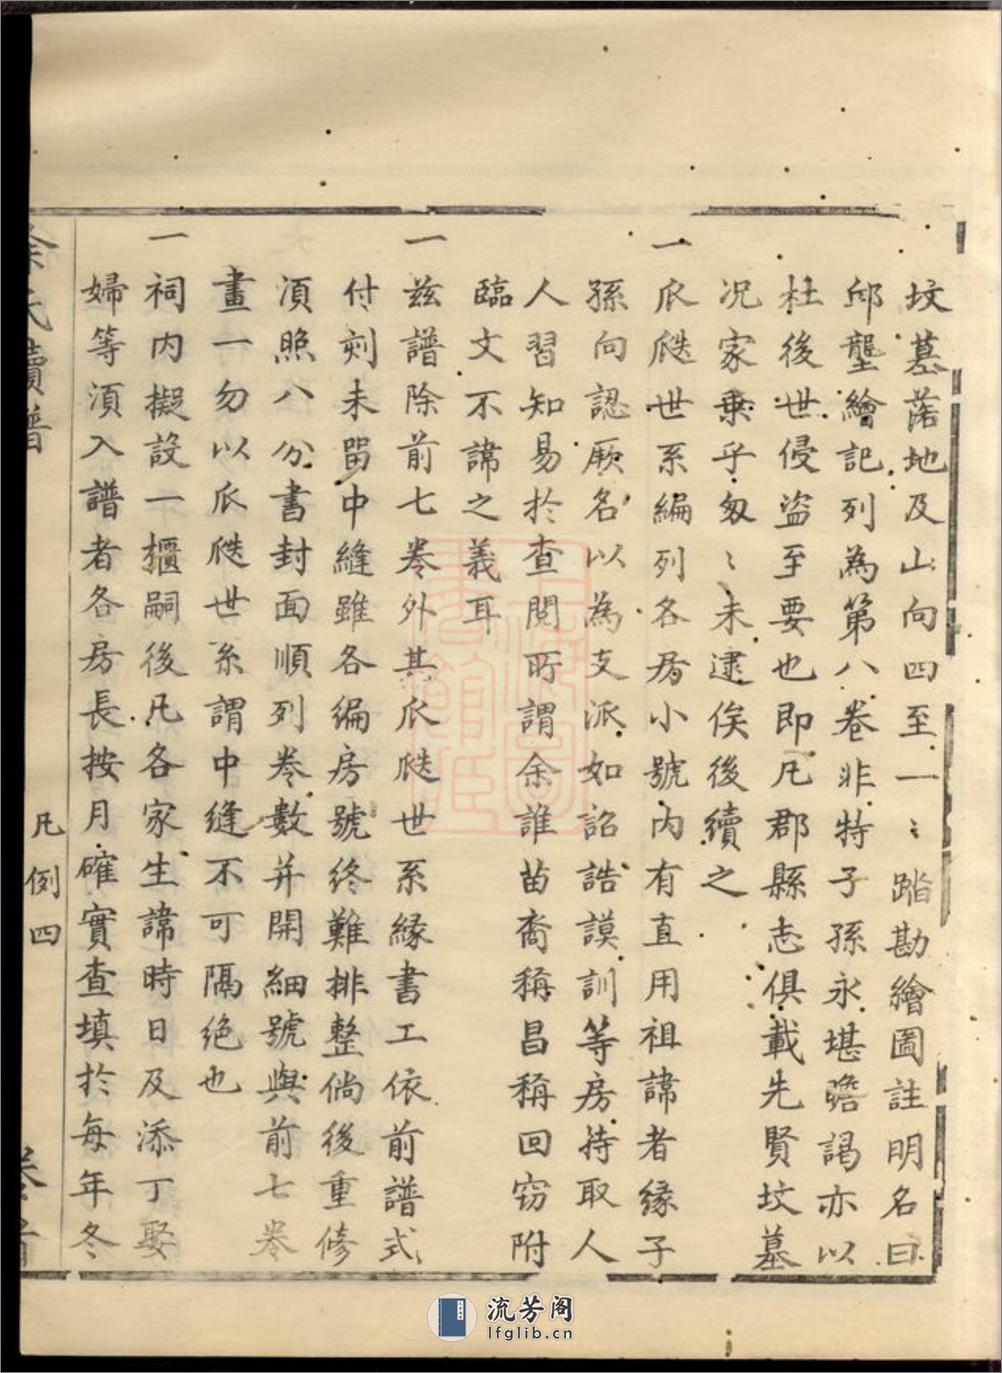 坟墓落地及山向四至一〻踏勘繪圖註明名曰
邱壟繪記列為第八卷非特子孫永堪瞻謁亦以
杜後世侵盜至要也即凡郡縣志俱載先賢坟墓
况家乗乎匆〻未逮俟後續之
一瓜瓞世系編列各房小號內有直用祖諱者緣子
孫向認厥名以為支派如詔誥謨訓等房持取人
人習知易於查閱所謂余誰苗裔稱昌稱回窃附
臨文不諱之義耳
一茲譜除前七卷外其瓜瓞世系緣書工依前譜式
付刻未畱中縫雖各編房號終難排整倘後重修
湏照八分書封面順列卷數并開細號與前七卷
畫一勿以瓜瓞世系謂中縫不可隔絕也
一祠內擬設一櫃嗣後凡各家生諱時日及添丁娶
婦等湏入譜者各房長按月確實查填於每年冬
余氏續譜
凡例四
卷首
流芳阁
lfglib.cn